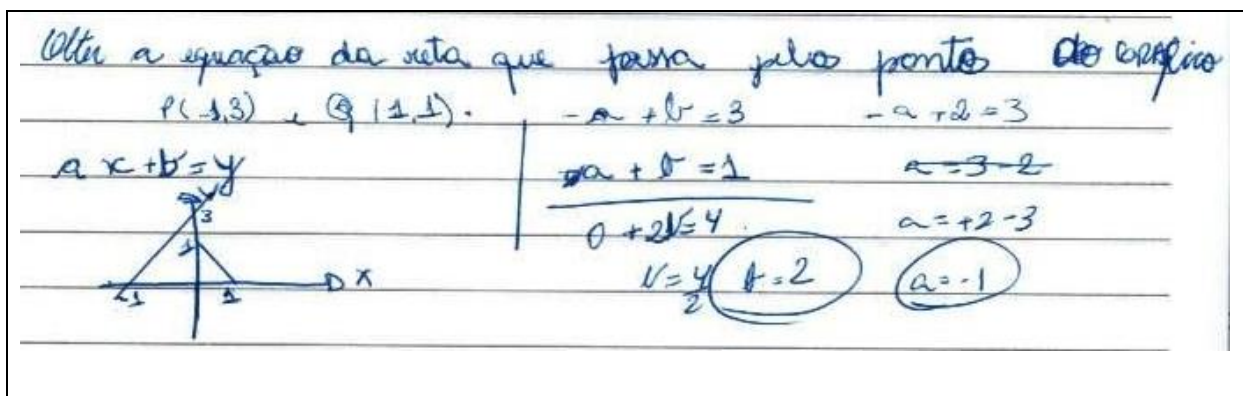 Obter a equação da reta que passa pelos pontos do gráfico
P(-1,3) e Q(1,1).
ax+b=y
y
3
1
-1 1 x
-a+b=3
a+b=1
0+2b=4
b=4/2 b=2
-a+2=3
a=3-2
a=+2-3
a=-1